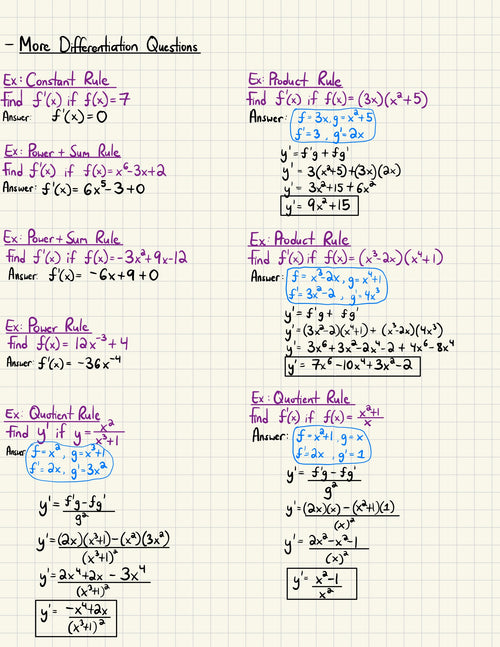 - More Differentiation Questions
Ex: Constant Rule
find f'(x) if f(x) = 7
Answer: f'(x) = 0
Ex: Power + Sum Rule
find f'(x) if f(x) = x⁶-3x+2
Answer: f'(x) = 6x⁵-3+0
Ex: Power + Sum Rule
find f'(x) if f(x) = -3x²+9x-12
Answer: f'(x) = -6x+9+0
Ex: Power Rule
find f(x) = 12x⁻³+4
Answer: f'(x) = -36x⁻⁴
Ex: Quotient Rule
find y' if y = x²/(x³+1)
Answer: f=x², g=x³+1
f'=2x, g'=3x²
y' = (f'g-fg')/g²
y' = ((2x)(x³+1)-(x²)(3x²))/(x³+1)²
y' = (2x⁴+2x - 3x⁴)/(x³+1)²
y' = (-x⁴+2x)/(x³+1)²
Ex: Product Rule
find f'(x) if f(x) = (3x)(x²+5)
Answer: f=3x, g=x²+5
f'=3, g'=2x
y' = f'g + fg'
y' = 3(x²+5)+(3x)(2x)
y' = 3x²+15+6x²
y' = 9x²+15
Ex: Product Rule
find f'(x) if f(x) = (x³-2x)(x⁴+1)
Answer: f = x³-2x, g=x⁴+1
f'=3x²-2, g'=4x³
y' = f'g + fg'
y' = (3x²-2)(x⁴+1) + (x³-2x)(4x³)
y' = 3x⁶+3x²-2x⁴-2 + 4x⁶-8x⁴
y' = 7x⁶-10x⁴+3x²-2
Ex: Quotient Rule
find f'(x) if f(x) = (x²+1)/x
Answer: f=x²+1, g=x
f'=2x, g'=1
y' = (f'g-fg')/g²
y' = ((2x)(x)-(x²+1)(1))/(x)²
y' = (2x²-x²-1)/(x)²
y' = (x²-1)/x²